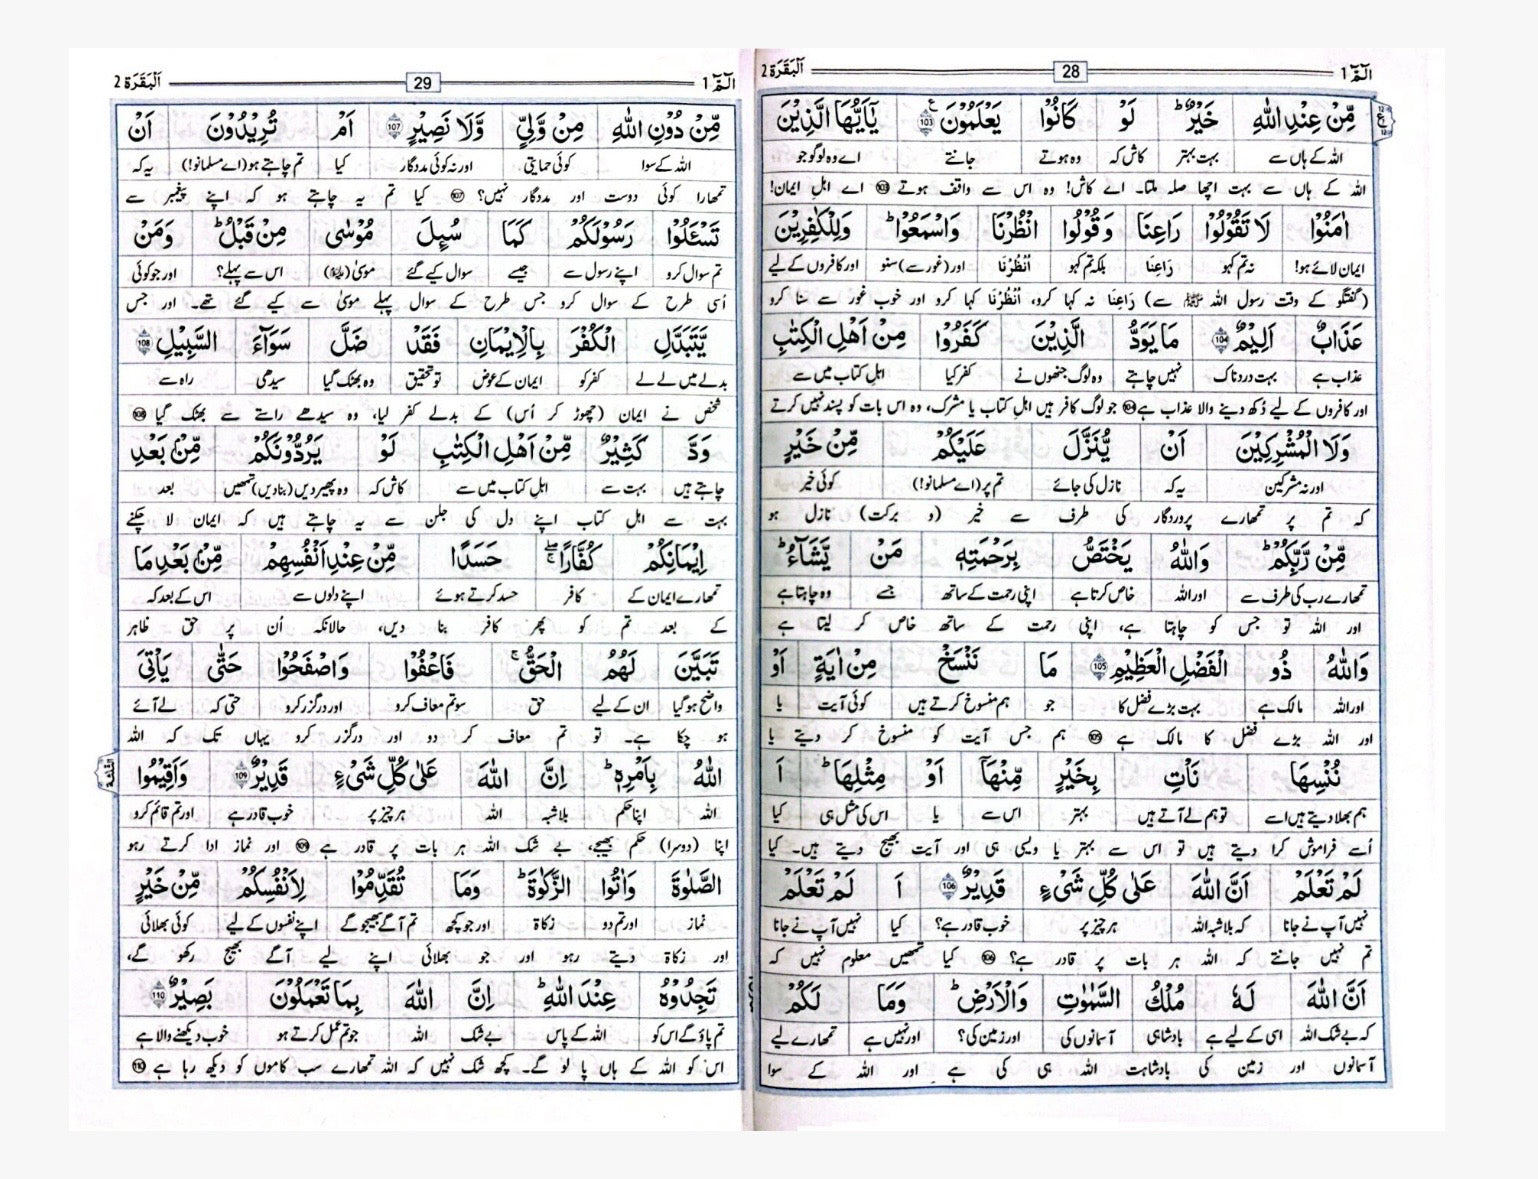 الٓمّٓ 1 28 اَلْبَقَرَة 2
مِّنْ عِنْدِ اللّٰهِ خَيْرٌ ؕ لَوْ كَانُوْا يَعْلَمُوْنَ ۧ 103 يٰۤاَيُّهَا الَّذِيْنَ
اللہ کے ہاں سے بہت بہتر کاش کہ وہ ہوتے جانتے اے وہ لوگو جو
اللہ کے ہاں سے بہت اچھا صلہ ملتا۔ اے کاش! وہ اس سے واقف ہوتے 103 اے اہلِ ایمان!
اٰمَنُوْا لَا تَقُوْلُوْا رَاعِنَا وَ قُوْلُوا انْظُرْنَا وَاسْمَعُوْا ؕ وَلِلْكٰفِرِيْنَ
ایمان لائے ہو! نہ تم کہو رَاعِنَا بلکہ تم کہو اُنْظُرْنَا اور (غور سے) سنو اور کافروں کے لیے
(گفتگو کے وقت رسول اللہ ﷺ سے) رَاعِنَا نہ کہا کرو، اُنْظُرْنَا کہا کرو اور خوب غور سے سنا کرو
عَذَابٌ اَلِيْمٌ 104 مَا يَوَدُّ الَّذِيْنَ كَفَرُوْا مِنْ اَهْلِ الْكِتٰبِ
عذاب ہے بہت دردناک نہیں چاہتے وہ لوگ جنھوں نے کفر کیا اہلِ کتاب میں سے
اور کافروں کے لیے دُکھ دینے والا عذاب ہے 104 جو لوگ کافر ہیں اہلِ کتاب یا مشرک، وہ اس بات کو پسند نہیں کرتے
وَلَا الْمُشْرِكِيْنَ اَنْ يُّنَزَّلَ عَلَيْكُمْ مِّنْ خَيْرٍ
اور نہ مشرکین یہ کہ نازل کی جائے تم پر (اے مسلمانو!) کوئی خیر
کہ تم پر تمھارے پروردگار کی طرف سے خیر (و برکت) نازل ہو
مِّنْ رَّبِّكُمْ ؕ وَاللّٰهُ يَخْتَصُّ بِرَحْمَتِهٖ مَنْ يَّشَآءُ ؕ
تمھارے رب کی طرف سے اور اللہ خاص کرتا ہے اپنی رحمت کے ساتھ جسے وہ چاہتا ہے
اور اللہ تو جس کو چاہتا ہے، اپنی رحمت کے ساتھ خاص کر لیتا ہے
وَاللّٰهُ ذُو الْفَضْلِ الْعَظِيْمِ 105 مَا نَنْسَخْ مِنْ اٰيَةٍ اَوْ
اور اللہ مالک ہے بہت بڑے فضل کا جو ہم منسوخ کرتے ہیں کوئی آیت یا
اور اللہ بڑے فضل کا مالک ہے 105 ہم جس آیت کو منسوخ کر دیتے یا
نُنْسِهَا نَاْتِ بِخَيْرٍ مِّنْهَاۤ اَوْ مِثْلِهَا ؕ اَ
ہم بھلا دیتے ہیں اسے تو ہم لے آتے ہیں بہتر اس سے یا اس کی مثل ہی کیا
اُسے فراموش کرا دیتے ہیں تو اس سے بہتر یا ویسی ہی اور آیت بھیج دیتے ہیں۔ کیا
لَمْ تَعْلَمْ اَنَّ اللّٰهَ عَلٰى كُلِّ شَيْءٍ قَدِيْرٌ 106 اَ لَمْ تَعْلَمْ
نہیں آپ نے جانا کہ بلاشبہ اللہ ہر چیز پر خوب قادر ہے؟ کیا نہیں آپ نے جانا
تم نہیں جانتے کہ اللہ ہر بات پر قادر ہے؟ 106 کیا تمھیں معلوم نہیں کہ
اَنَّ اللّٰهَ لَهٗ مُلْكُ السَّمٰوٰتِ وَالْاَرْضِ ؕ وَمَا لَكُمْ
کہ بے شک اللہ اسی کے لیے ہے بادشاہی آسمانوں کی اور زمین کی؟ اور نہیں ہے تمھارے لیے
آسمانوں اور زمین کی بادشاہت اللہ ہی کی ہے اور اللہ کے سوا
الٓمّٓ 1 29 اَلْبَقَرَة 2
مِّنْ دُوْنِ اللّٰهِ مِنْ وَّلِيٍّ وَّلَا نَصِيْرٍ 107 اَمْ تُرِيْدُوْنَ اَنْ
اللہ کے سوا کوئی حمایتی اور نہ کوئی مددگار کیا تم چاہتے ہو (اے مسلمانو!) یہ کہ
تمھارا کوئی دوست اور مددگار نہیں؟ 107 کیا تم یہ چاہتے ہو کہ اپنے پیغمبر سے
تَسْـَٔلُوْا رَسُوْلَكُمْ كَمَا سُىِٕلَ مُوْسٰى مِنْ قَبْلُ ؕ وَمَنْ
تم سوال کرو اپنے رسول سے جیسے سوال کیے گئے موسیٰ (علیہ السلام) اس سے پہلے؟ اور جو کوئی
اُسی طرح کے سوال کرو جس طرح کے سوال پہلے موسیٰ سے کیے گئے تھے۔ اور جس
يَّتَبَدَّلِ الْكُفْرَ بِالْاِيْمَانِ فَقَدْ ضَلَّ سَوَآءَ السَّبِيْلِ 108
بدلے میں لے لے کفر کو ایمان کے عوض تو تحقیق وہ بھٹک گیا سیدھی راہ سے
شخص نے ایمان (چھوڑ کر اُس) کے بدلے کفر لیا، وہ سیدھے راستے سے بھٹک گیا 108
وَدَّ كَثِيْرٌ مِّنْ اَهْلِ الْكِتٰبِ لَوْ يَرُدُّوْنَكُمْ مِّنْۢ بَعْدِ
چاہتے ہیں بہت سے اہلِ کتاب میں سے کاش کہ وہ پھیر دیں (بنا دیں) تمھیں بعد
بہت سے اہلِ کتاب اپنے دل کی جلن سے یہ چاہتے ہیں کہ ایمان لا چکنے
اِيْمَانِكُمْ كُفَّارًا ۖۚ حَسَدًا مِّنْ عِنْدِ اَنْفُسِهِمْ مِّنْۢ بَعْدِ مَا
تمھارے ایمان کے کافر حسد کرتے ہوئے اپنے دلوں سے اس کے بعد کہ
کے بعد تم کو پھر کافر بنا دیں، حالانکہ اُن پر حق ظاہر
تَبَيَّنَ لَهُمُ الْحَقُّ ۚ فَاعْفُوْا وَاصْفَحُوْا حَتّٰى يَاْتِيَ
واضح ہو گیا ان کے لیے حق سو تم معاف کرو اور درگزر کرو حتی کہ لے آئے
ہو چکا ہے۔ تو تم معاف کر دو اور درگزر کرو یہاں تک کہ اللہ
اللّٰهُ بِاَمْرِهٖ ؕ اِنَّ اللّٰهَ عَلٰى كُلِّ شَيْءٍ قَدِيْرٌ 109 وَاَقِيْمُوا
اللہ اپنا حکم بلاشبہ اللہ ہر چیز پر خوب قادر ہے اور تم قائم کرو
اپنا (دوسرا) حکم بھیجے، بے شک اللہ ہر بات پر قادر ہے 109 اور نماز ادا کرتے رہو
الصَّلٰوةَ وَاٰتُوا الزَّكٰوةَ ؕ وَمَا تُقَدِّمُوْا لِاَنْفُسِكُمْ مِّنْ خَيْرٍ
نماز اور تم دو زکاۃ اور جو کچھ تم آگے بھیجو گے اپنے نفسوں کے لیے کوئی بھلائی
اور زکاۃ دیتے رہو اور جو بھلائی اپنے لیے آگے بھیج رکھو گے،
تَجِدُوْهُ عِنْدَ اللّٰهِ ؕ اِنَّ اللّٰهَ بِمَا تَعْمَلُوْنَ بَصِيْرٌ 110
تم پاؤ گے اس کو اللہ کے پاس بے شک اللہ جو تم عمل کرتے ہو خوب دیکھنے والا ہے
اس کو اللہ کے ہاں پا لو گے۔ کچھ شک نہیں کہ اللہ تمھارے سب کاموں کو دیکھ رہا ہے 110